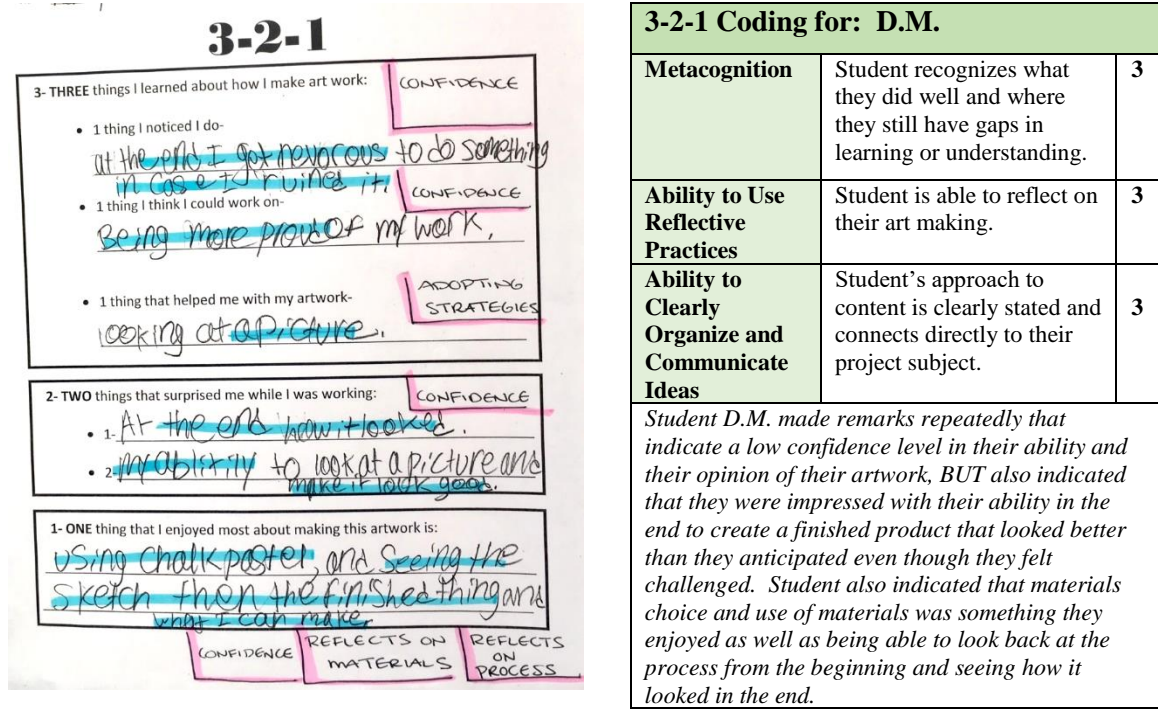 3-2-1
3- THREE things I learned about how I make art work:
CONFIDENCE
• 1 thing I noticed I do-
at the end I got nevorous to do something
in case I ruined it.
CONFIDENCE
• 1 thing I think I could work on-
Being more proud of my work.
ADOPTING
STRATEGIES
• 1 thing that helped me with my artwork-
looking at a picture.
2- TWO things that surprised me while I was working:
CONFIDENCE
• 1- At the end how it looked.
• 2- my ablirity to look at a picture and
make it look good.
1- ONE thing that I enjoyed most about making this artwork is:
using chalk pastel, and seeing the
sketch then the finished thing and
what I can make.
CONFIDENCE
REFLECTS ON
MATERIALS
REFLECTS
ON
PROCESS
3-2-1 Coding for: D.M.
Metacognition
Student recognizes what
they did well and where
they still have gaps in
learning or understanding.
3
Ability to Use
Reflective
Practices
Student is able to reflect on
their art making.
3
Ability to
Clearly
Organize and
Communicate
Ideas
Student’s approach to
content is clearly stated and
connects directly to their
project subject.
3
Student D.M. made remarks repeatedly that
indicate a low confidence level in their ability and
their opinion of their artwork, BUT also indicated
that they were impressed with their ability in the
end to create a finished product that looked better
than they anticipated even though they felt
challenged. Student also indicated that materials
choice and use of materials was something they
enjoyed as well as being able to look back at the
process from the beginning and seeing how it
looked in the end.